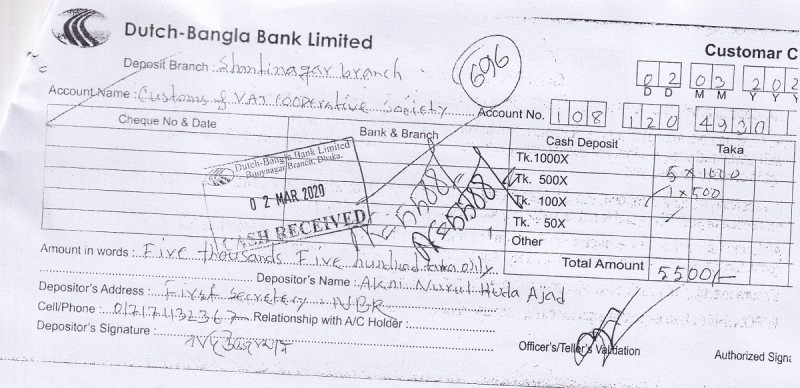 Dutch-Bangla Bank Limited
Customar C
696
Deposit Branch : Shantinagar branch
02 03 202
D D M M Y Y Y
Account Name : Customs & VAT cooperative Society Account No. 108 120 4930
Cheque No & Date Bank & Branch Cash Deposit Taka
Tk. 1000X 5 x 1000
Tk. 500X 1 x 500
Tk. 100X
Tk. 50X
Other
Total Amount 5500/-
Dutch-Bangla Bank Limited
Bijoynagar Branch, Dhaka.
02 MAR 2020
CASH RECEIVED
Amount in words : Five thousands Five hundred taka only
Depositor's Name : Nurul Huda Ajad
Depositor's Address : First Secretery NBR
Cell/Phone : Relationship with A/C Holder :
Depositor's Signature :
Officer's/Teller's Validation
Authorized Signa